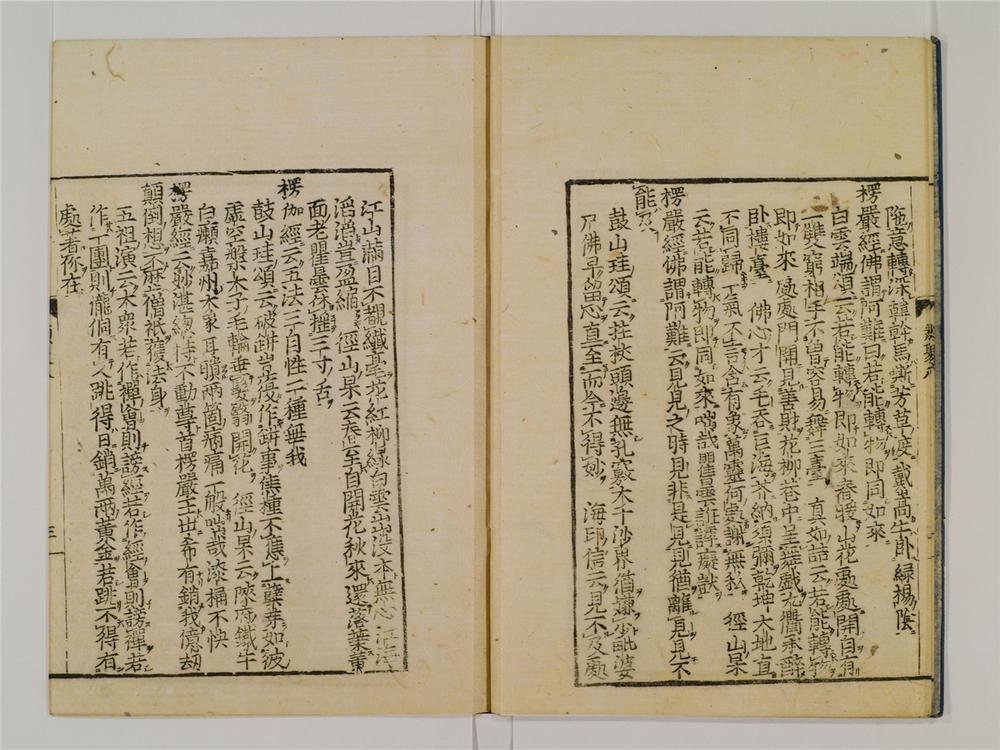 陁意轉深韓幹馬嘶芳草渡戴嵩牛卧綠楊陰
楞嚴經佛謂阿難曰若能轉物即同如來
白雲端頌云若能轉物即如來春暖山花處處開自有
一雙窮相手不曾容易舞三臺 真如喆云若能轉物
即如來處處門開見善財花柳巷中呈遊戲九衢乘醉
卧樓臺 佛心才云毛吞巨海芥納須彌乾坤大地直
不同歸一氣不言含有象萬靈何處謝無私 徑山杲
云若能轉物即同如來咄哉瞿曇誑謼癡獃
楞嚴經佛謂阿難云見見之時見非是見見猶離見見不
能及
鼓山珪頌云拄杖頭邊無孔竅大千沙界猶嫌小毗婆
尸佛早留心直至而今不得妙 海印信云見不及處
江山滿目不覩纖毫花紅柳綠白雲出沒本無心江海
滔滔豈盈縮 徑山杲云春至百開花秋來還落葉黃
面老瞿曇休搖三寸舌
楞伽經云五法三自性二種無我
鼓山珪頌云破缾豈復作缾事焦種不應上孽芽如彼
虛空槃木子毛輪垂髮翳開花 徑山杲云陝府鐵牛
白癩嘉州大象耳聵兩箇病痛一般咄哉漆桶不快
楞嚴經云妙湛總持不動尊首楞嚴王世希有銷我億劫
顛倒想不歷僧祇獲法身
五祖演云大衆若作禪會則謗經若作經會則謗禪若
作一團則儱侗有人跳得日銷萬兩黃金若跳不得有
處著你在